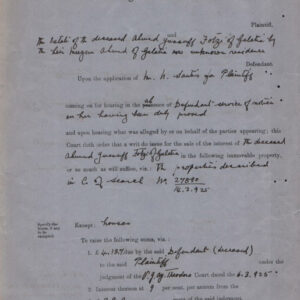 Plaintiff,
and
The estate of the deceased Ahmed Yussuff Fotzi of Galatia by
the heir Ahmed of Galatia now unknown residence
Defendant.
Upon the application of for Plaintiff
coming on for hearing in the absence of Defendant service of notice
on her having been duly proved
and upon hearing what was alleged by or on behalf of the parties appearing; this
Court doth order that a writ do issue for the sale of the interest of the deceased
Ahmed Yussuff Fotzi of Galatia in the following immovable property,
or so much as will suffice, viz.: The properties described
in C. of Search No 27890
16.3.925
Specify the
items if any
to be
exempted.
Except: houses
To raise the following sums, viz. :
1. £ due by the said Defendant (deceased)
to the said Plaintiff under the
judgment of the Court dated the 6.3.925
2. Interest thereon at 9 per cent. per annum from the